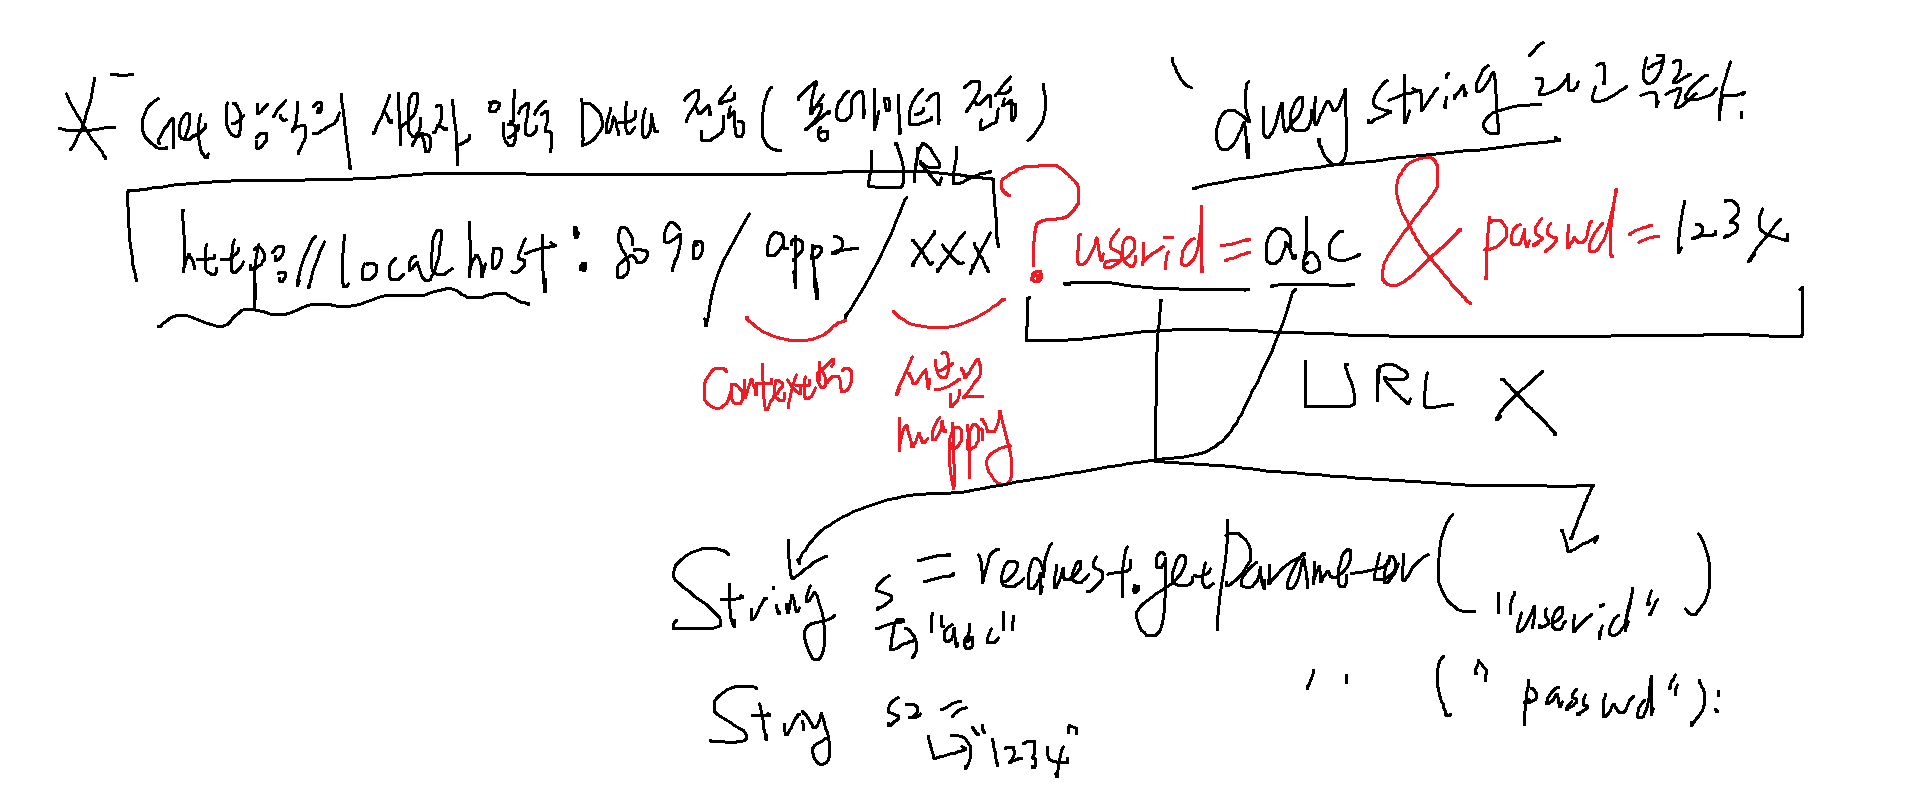 * Get 방식의 사용자 입력 Data 전송 (폼데이터 전송)
"Query string"라고 부른다.
URL
http://localhost:8090/app2/xxx?userid=abc&passwd=1234
Context명 서블릿
mapping
URL X
String s = request.getParameter("userid")
→"abc"
String s2 = " ("passwd");
→"1234"